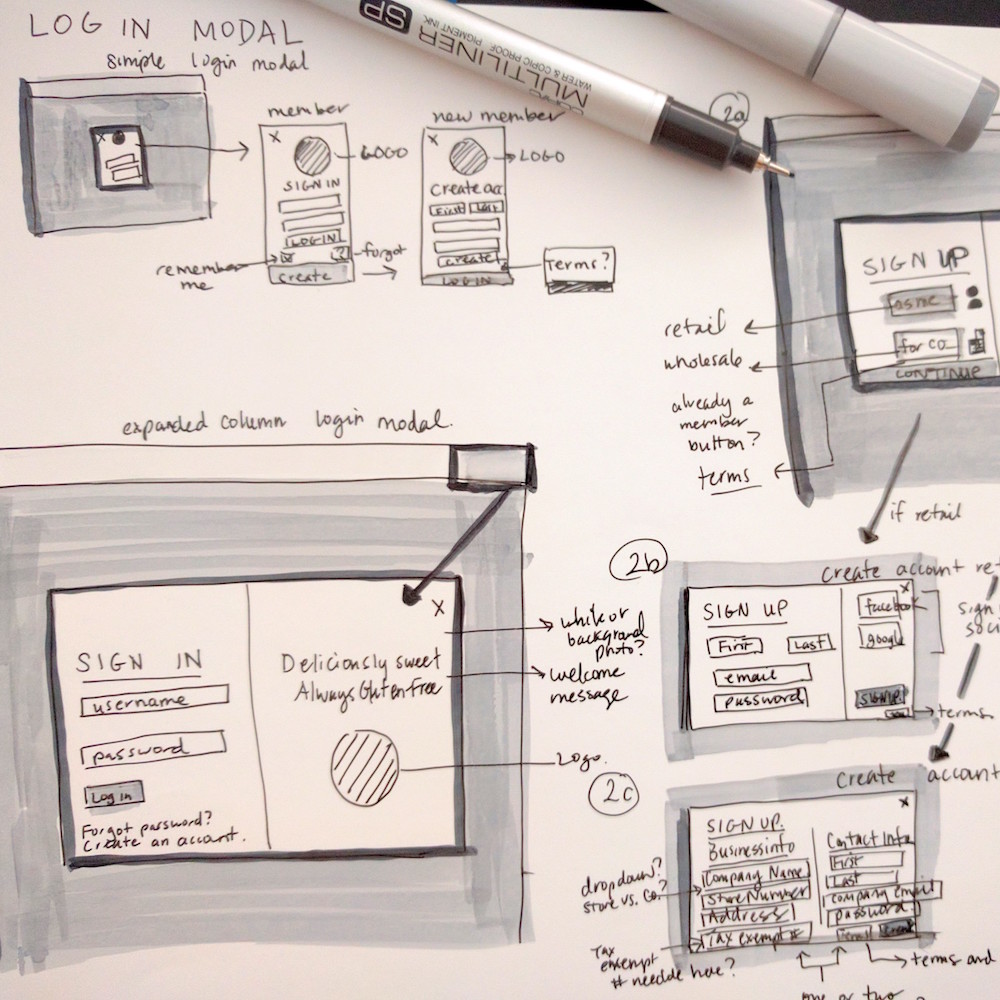 LOG IN MODAL
simple login modal
SP
MULTILINER
WATER & COPIC PROOF
PIGMENT INK
member
new member
X
X
X
LOGO
LOGO
SIGN IN
Create acc
First Last
LOG IN
forgot
remember
me
create
create
LOG IN
Terms?
2a
SIGN UP
for co.
CONTINUE
retail
wholesale
already a
member
button?
terms
if retail
expanded column login modal.
X
SIGN IN
username
password
Log in
Forgot password?
Create an account.
Deliciously sweet
Always Gluten-Free
white or
background
photo?
welcome
message
Logo.
2b
create account ret
X
SIGN UP
First Last
email
password
facebook
google
SIGN UP
sign
soci
terms
2c
Create account
X
SIGN UP.
Business info
Company Name
Store Number
Address
Tax exempt #
Contact Info
First
Last
company email
password
dropdown?
store vs. co?
Tax
exempt
# needde here?
terms and
one or two